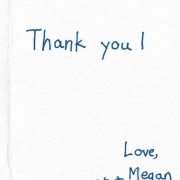 Thank you!
Love,
Megan